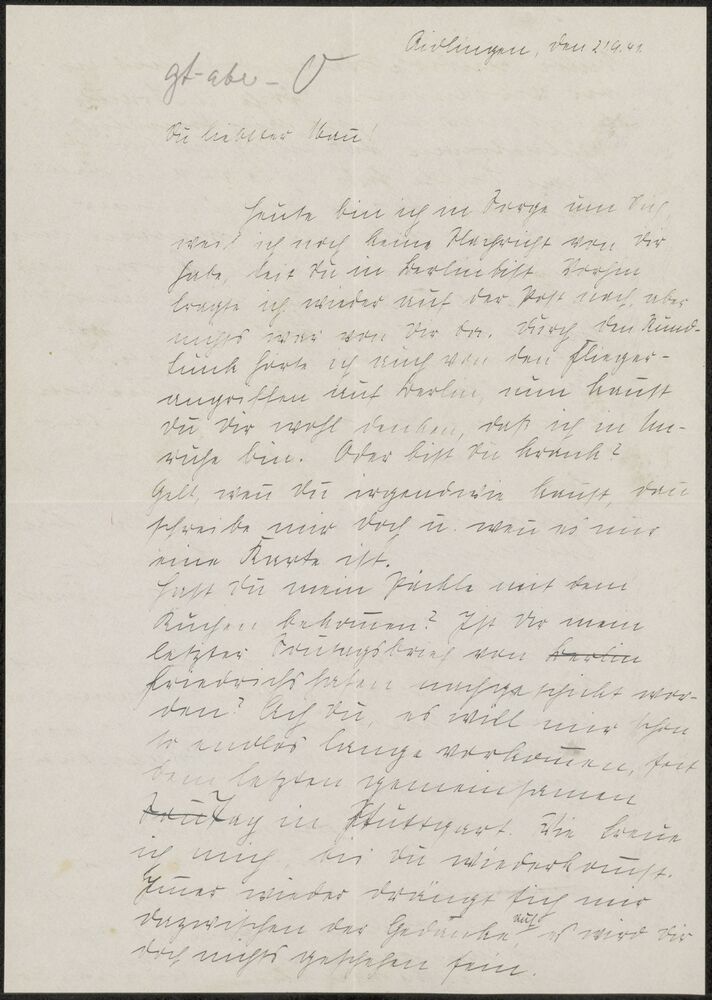 Aidlingen, den 2.9.41.
gt-abe-
Du liebster Mañ!
Heute bin ich in Sorge um Dich
weil ich noch keine Nachricht von Dir
habe, seit Du in Berlin bist. Vorhin
fragte ich wieder auf der Post nach, aber
nichts war von Dir da. Durch den Rund-
funk hörte ich auch von den Flieger-
angriffen auf Berlin, nun kañst
Du Dir wohl denken, daß ich in Un-
ruhe bin. Oder bist Du krank?
Gell, weñ Du irgendwie kañst, dañ
schreibe mir doch u. weñ es nur
eine Karte ist.
Hast Du mein Päckle mit dem
Kuchen bekom̄en? Ist Dir mein
letzter Soñtagsbrief von Berlin
Friedrichshafen nachgeschickt wor-
den? Ach Du, es will mir schon
so endlos lange vorkom̄en, seit
dem letzten gemeinsamen
Soñtag in Stuttgart. Wie freue
ich mich, bis Du wiederkom̄st.
Im̄er wieder drängt sich mir
dazwischen der Gedanke auf, es wird Dir
doch nichts geschehen sein.